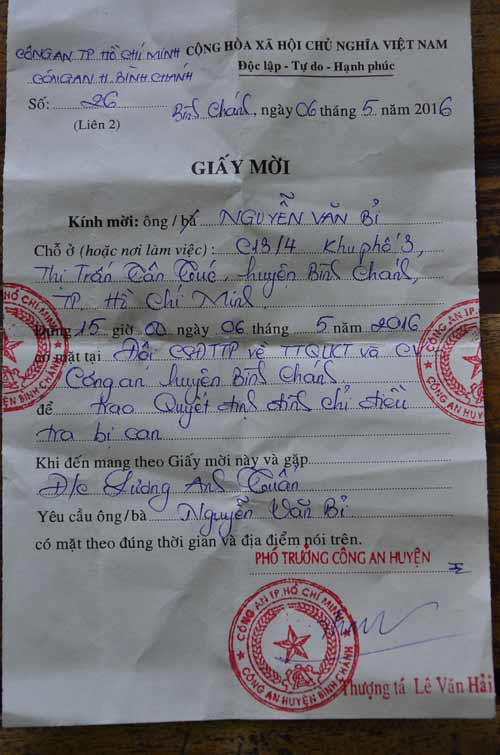 CÔNG AN TP HỒ CHÍ MINH
CÔNG AN H. BÌNH CHÁNH
CỘNG HÒA XÃ HỘI CHỦ NGHĨA VIỆT NAM
Độc lập - Tự do - Hạnh phúc
Số: 26
(Liên 2)
Bình Chánh, ngày 06 tháng 5 năm 2016
GIẤY MỜI
Kính mời: ông / bà NGUYỄN VĂN BỈ
Chỗ ở (hoặc nơi làm việc): C13/4 Khu phố 3,
Thị Trấn Tân Túc, huyện Bình Chánh,
TP. Hồ Chí Minh
Đúng 15 giờ 00 ngày 06 tháng 5 năm 2016
có mặt tại Đội CSĐTTP về TTQLKT và CV
Công an huyện Bình Chánh
để trao Quyết định đình chỉ điều
tra bị can
Khi đến mang theo Giấy mời này và gặp
Đ/c Lương Anh Tuấn
Yêu cầu ông/bà Nguyễn Văn Bỉ
có mặt theo đúng thời gian và địa điểm nói trên.
PHÓ TRƯỞNG CÔNG AN HUYỆN
CÔNG AN TP. HỒ CHÍ MINH
CÔNG AN HUYỆN BÌNH CHÁNH
Thượng tá Lê Văn Hải